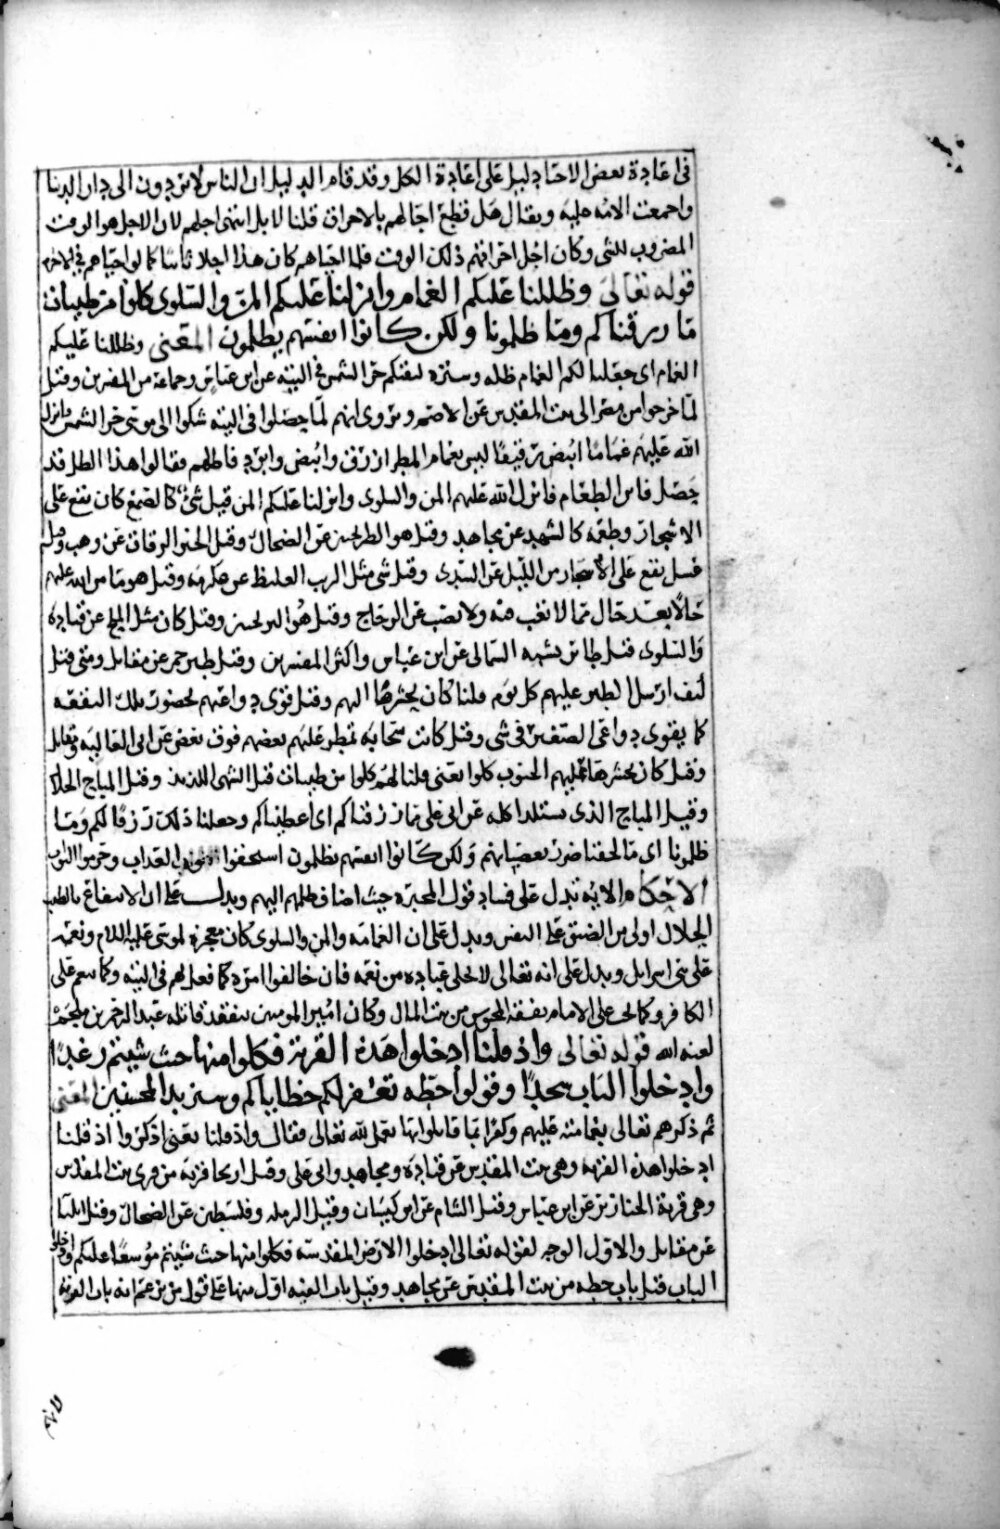 في اعادة بعض الاحاد دليل على اعادة الكل وقد قام الدليل ان الناس لا يردون الى دار الدنيا
واجمعت الامة عليه ويقال هل قطع اجالهم بالاحراق قلنا لا بل انتهى اجلهم لان الاجل هو الوقت
المضروب للشي وكان اجل احراقهم ذلك الوقت فلما احياهم كان هذا اجلا ثانيا كما لو احياهم في الاخرة
قوله تعالى وظللنا عليكم الغمام وانزلنا عليكم المن والسلوى كلوا من طيبات
ما رزقناكم وما ظلمونا ولكن كانوا انفسهم يظلمون المعنى وظللنا عليكم
الغمام اي جعلنا لكم الغمام ظلة وسترة لتقيكم حر الشمس في التيه عن ابن عباس وجماعة من المفسرين وقيل
لما خرجوا من مصر الى بيت المقدس عن الاصم وتروى انهم لما حصلوا في التيه شكوا الى موسى حر الشمس وانزل
الله عليهم غماما ابيض رقيقا ليس بغمام المطر ارق وابيض وابرد فاظلهم فقالوا هذا الظل قد
حصل فاين الطعام فانزل الله عليهم المن والسلوى وانزلنا عليكم المن قيل شيء كالصمغ كان يقع على
الاشجار وطعمه كالشهد عن مجاهد وقيل هو الطرنجبين عن الضحاك وقيل الخبز الرقاق عن وهب وقيل
عسل يقع على الاشجار من الليل عن السدي وقيل شي مثل الرب الغليظ عن عكرمة وقيل هو ما من الله عليهم
حالا بعد حال مما لا تعب منه ولا نصب عن الزجاج وقيل هو الترنجبين وقيل كان مثل الثلج عن قتادة
والسلوى قيل طائر يشبه السمانى عن ابن عباس واكثر المفسرين وقيل طير حمر عن مقاتل ومتى قيل
كيف ارسل الطير عليهم كل يوم قلنا كان يحشرها اليهم وقيل قوى دواعيهم لحضور تلك البقعة
كما يقوي دواعي في شي وقيل كانت سحابة تمطر عليهم بعضهم فوق بعض عن ابي العالية ومقاتل
وقيل كان يحشرها عليهم الجنوب كلوا يعني قلنا لهم كلوا من طيبات قيل الشهي اللذيذ وقيل المباح الحلال
وقيل المباح الذي يستلذ اكله عن ابي علي ما رزقناكم اي اعطيناكم وجعلنا ذلك رزقا لكم وما
ظلمونا اي ما لحقنا ضرر بعصيانهم ولكن كانوا انفسهم يظلمون استحقوا العذاب وحرموا الثواب
الاحكام الاية تدل على فساد قول المجبرة حيث اضاف ظلمهم اليهم ويدل على ان الانتفاع بالطيب
الحلال اولى من الضيق على النفس ويدل على ان الغمامة والمن والسلوى كان معجزة لموسى عليه السلام ونعمة
على بني اسرايل ويدل على انه تعالى لا يخلي عباده من نعمه فان خالفوا امره كما فعل لهم في التيه وكما ينعم على
الكافر وكما يجب على الامام نفقة المحبوس من بيت المال وكان امير المومنين يتفقد قاتله عبد الرحمن بن ملجم
لعنه الله قوله تعالى واذ قلنا ادخلوا هذه القرية فكلوا منها حيث شيتم رغدا
وادخلوا الباب سجدا وقولوا حطة نغفر لكم خطاياكم وسنزيد المحسنين المعنى
ثم ذكرهم تعالى بنعامته عليهم وكفرانها قابلوا بها نعم الله تعالى فقال واذ قلنا يعني اذكروا اذ قلنا
ادخلوا هذه القرية وهي بيت المقدس عن قتادة ومجاهد وابي علي وقيل اريحا قرية من قرى بيت المقدس
وهي قرية الجبارين عن ابن عباس وقيل الشام عن ابن كيسان وقيل الرملة وفلسطين عن الضحاك وقيل ايليا
عن مقاتل والاول الوجه لقوله تعالى ادخلوا الارض المقدسة فكلوا منها حيث شيتم موسعا عليكم وادخلوا
الباب قيل باب حطة من بيت المقدس عن مجاهد وقيل باب القبة على قول من زعم انه باب القرية